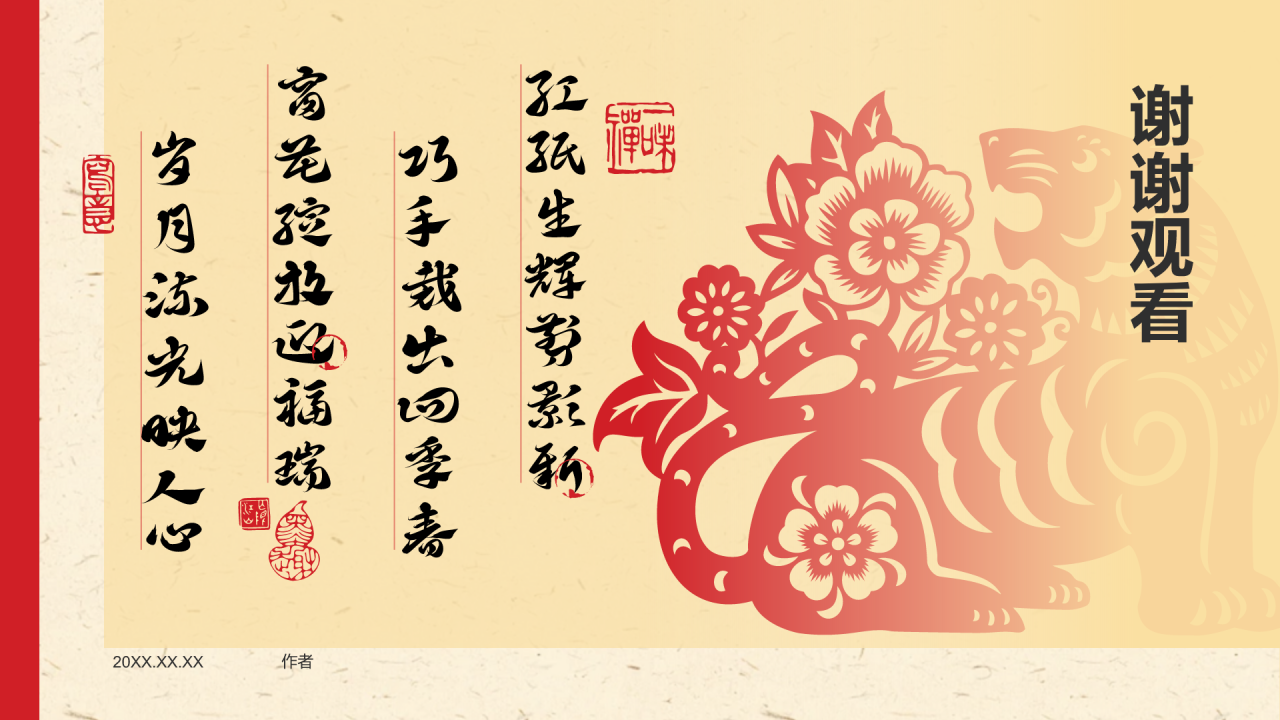 谢谢观看
一味禪
红纸生辉剪影新
巧手裁出四季春
窗花绽放迎福瑞
岁月流光映人心
20XX.XX.XX
作者